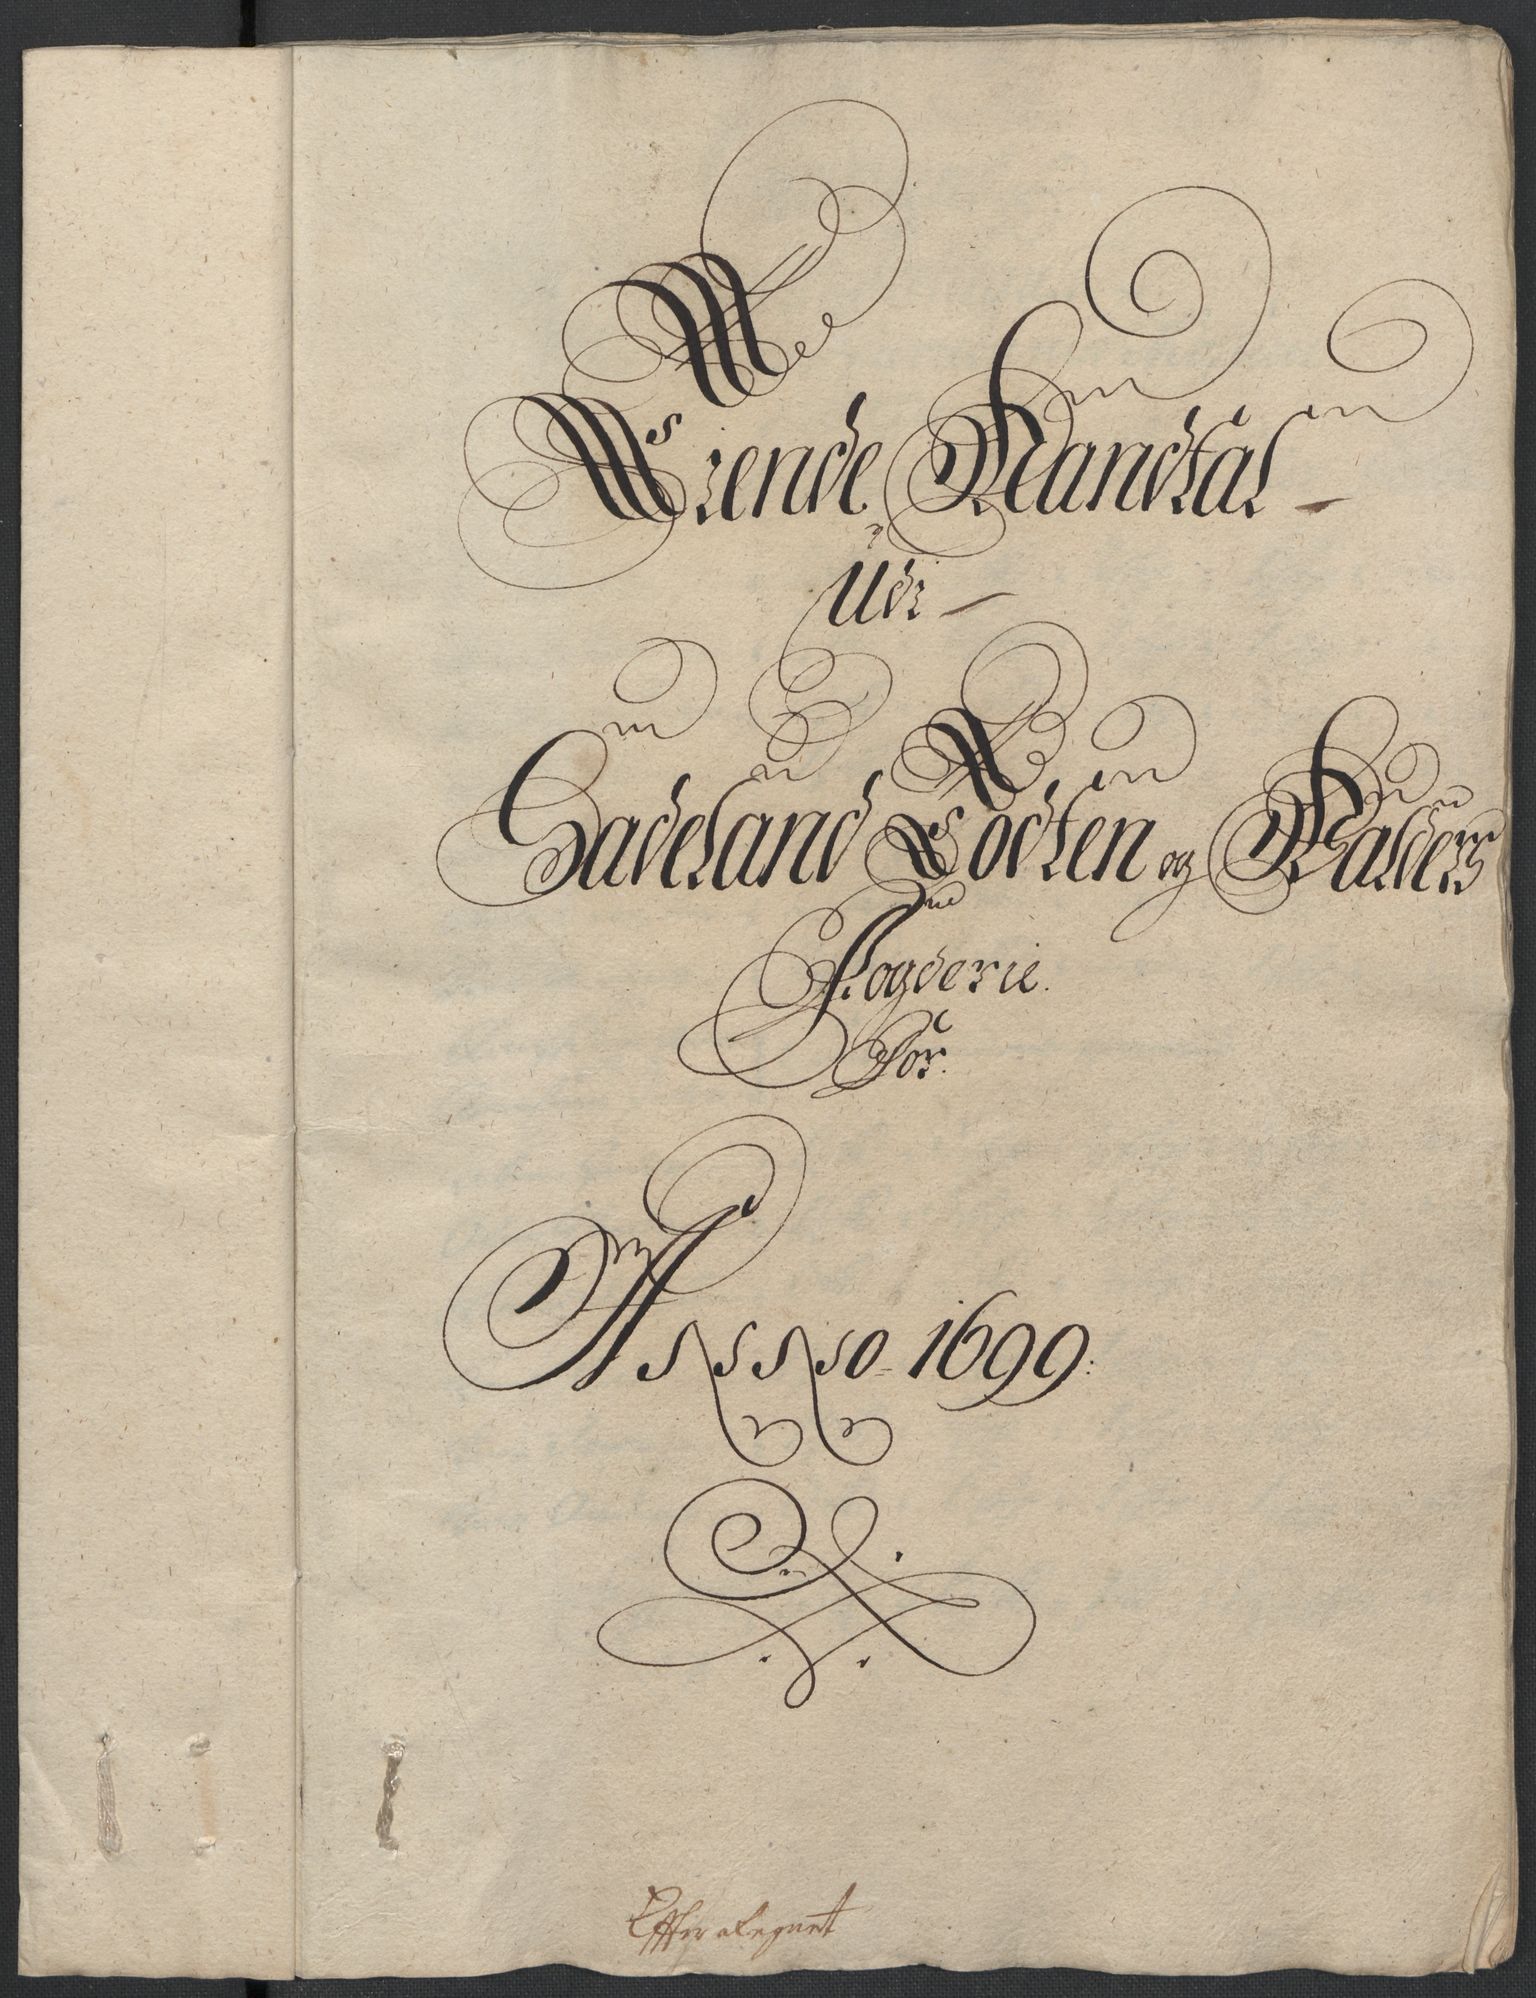 Tiende Mandtal
Udi
Hadeland Todten og Valders
Fogderie.
For.
Anno 1699:
Efterregnet